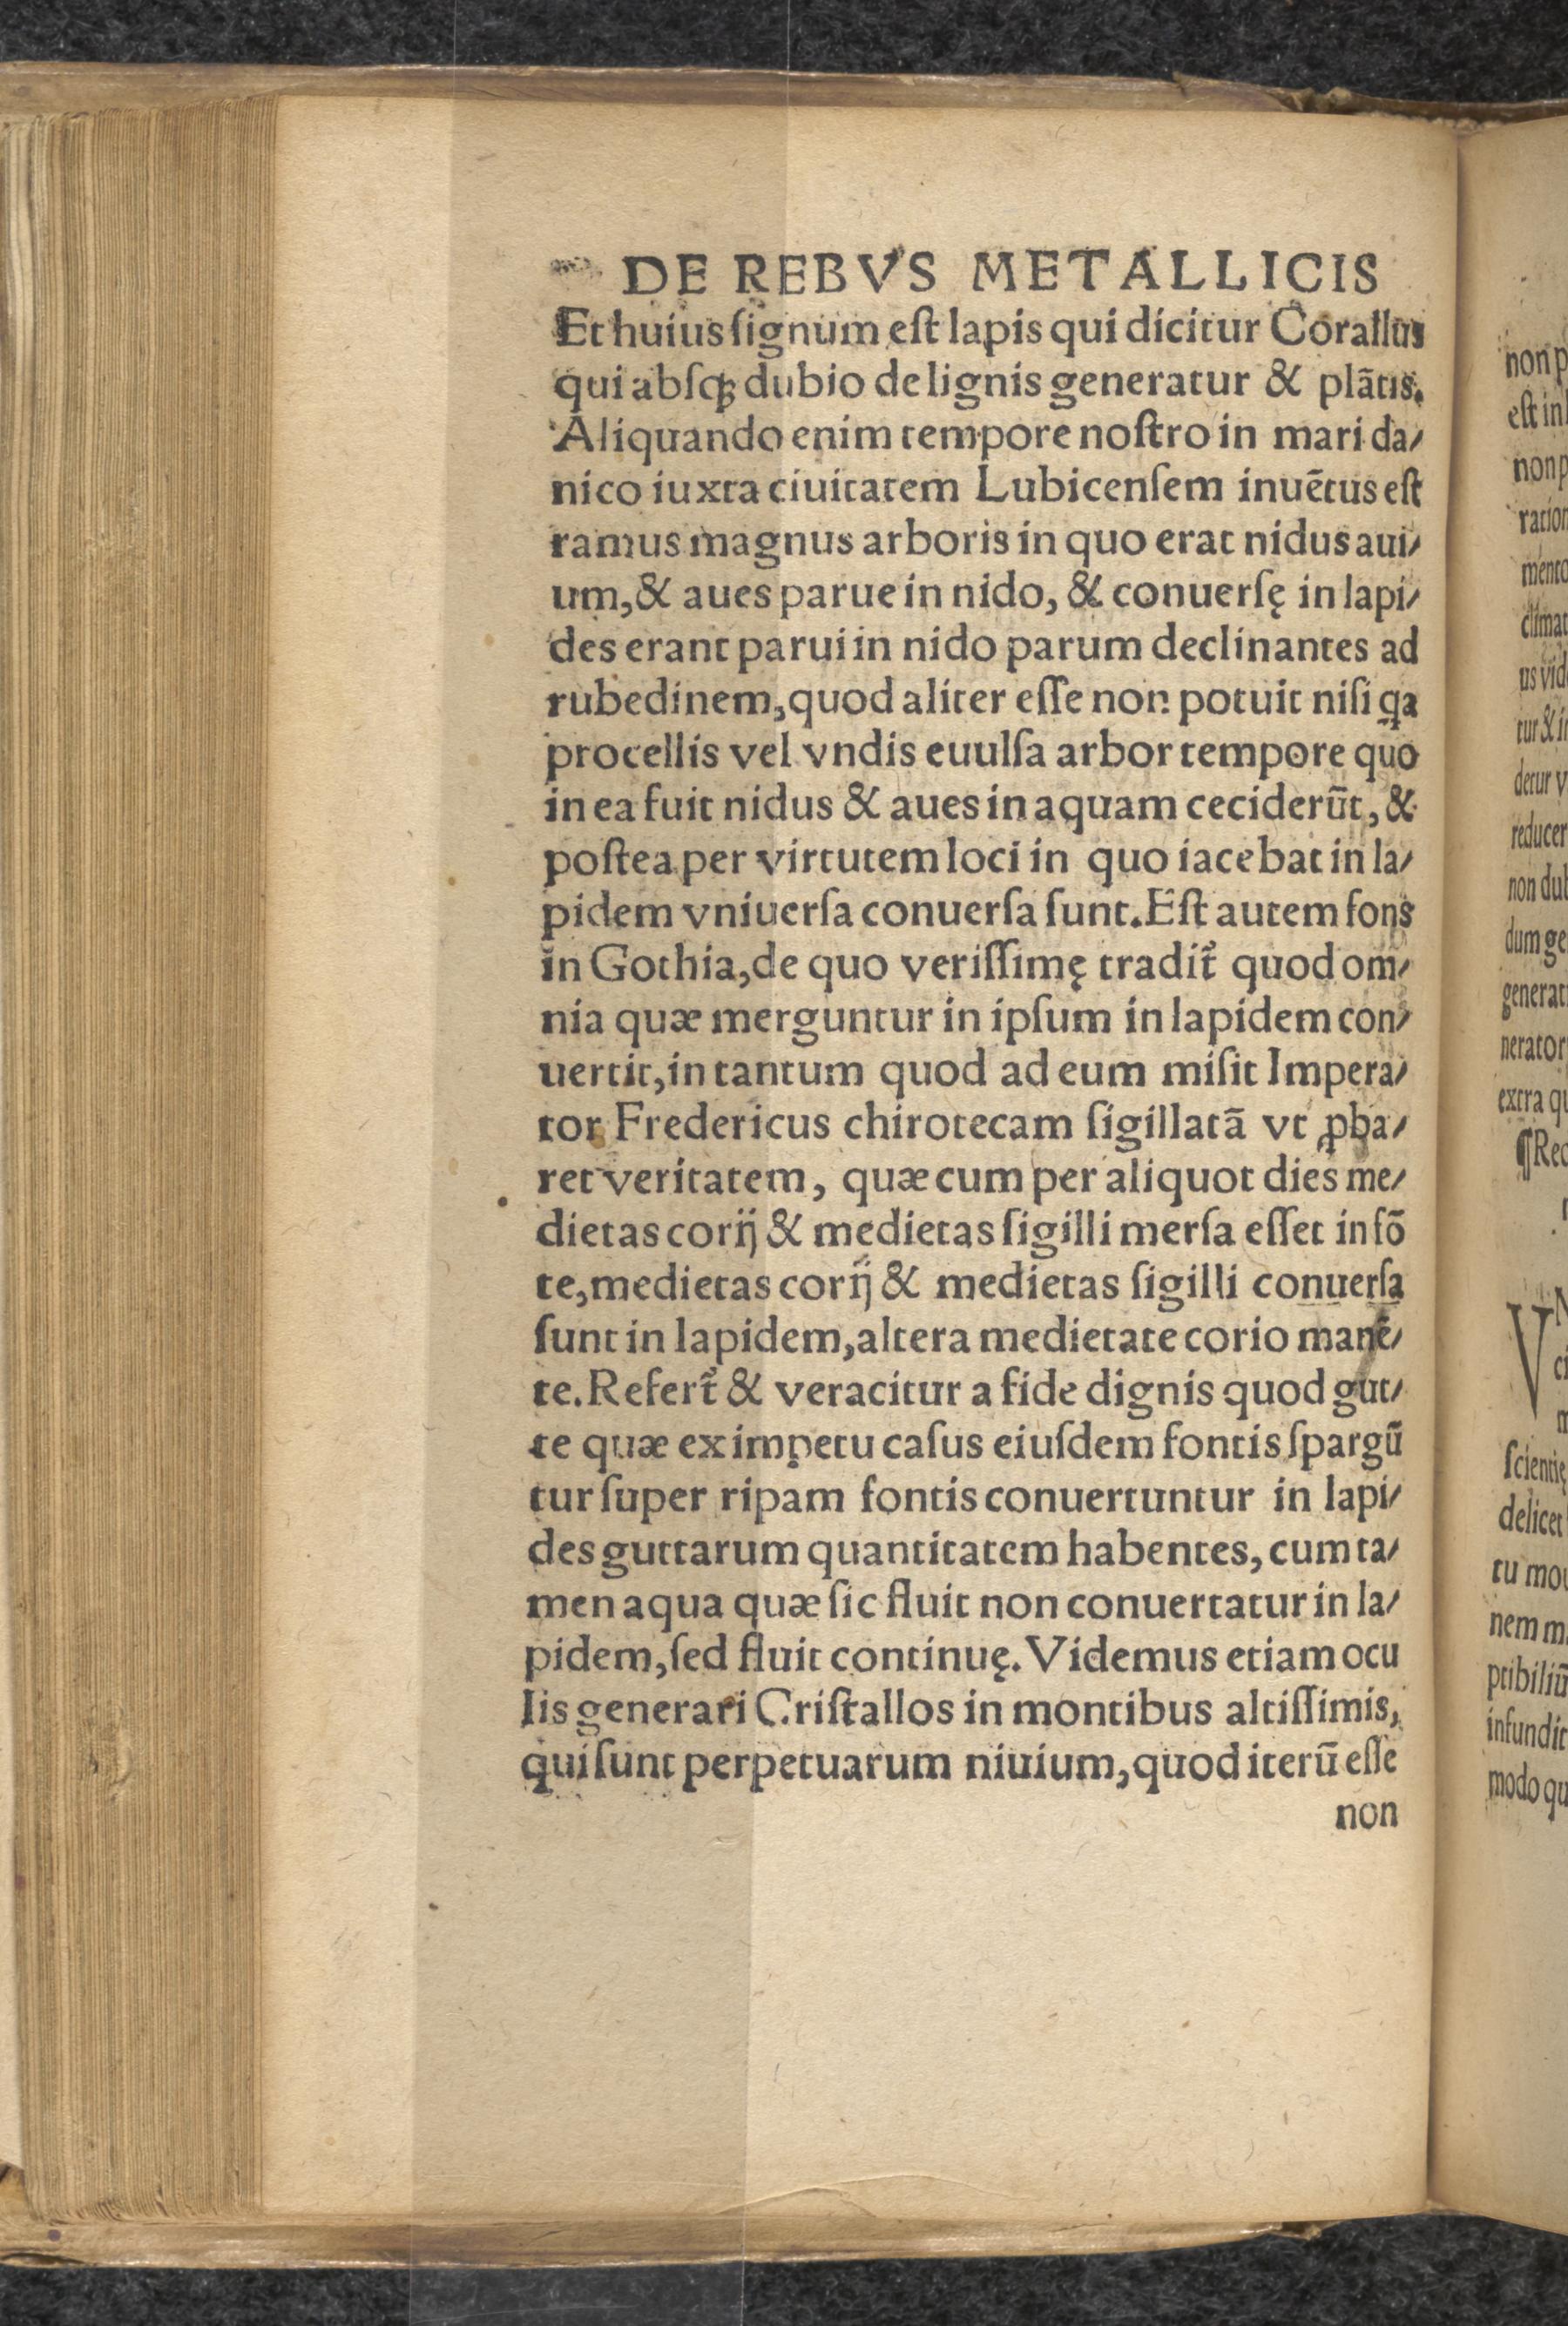 DE REBVS METALLICIS
Et huius ſignum eſt lapis qui dicitur Corallus
qui abſqꝫ dubio de lignis generatur & plātis.
Aliquando enim tempore noſtro in mari da/
nico iuxta ciuitatem Lubicenſem inuētus eſt
ramus magnus arboris in quo erat nidus aui/
um, & aues parue in nido, & conuerſę in lapi/
des erant parui in nido parum declinantes ad
rubedinem, quod aliter eſſe non potuit niſi qa
procellis vel vndis euulſa arbor tempore quo
in ea fuit nidus & aues in aquam ceciderūt, &
poſtea per virtutem loci in quo iacebat in la/
pidem vniuerſa conuerſa ſunt. Eſt autem fons
in Gothia, de quo veriſſimę tradit᷑ quod om/
nia quæ merguntur in ipſum in lapidem con/
uertit, in tantum quod ad eum miſit Impera/
tor Fredericus chirotecam ſigillatā vt ꝓba/
ret veritatem, quæ cum per aliquot dies me/
dietas corij & medietas ſigilli merſa eſſet in fō
te, medietas corij & medietas ſigilli conuerſa
ſunt in lapidem, altera medietate corio manē/
te. Refert᷑ & veracitur a fide dignis quod gut/
te quæ ex impetu caſus eiuſdem fontis ſpargū
tur ſuper ripam fontis conuertuntur in lapi/
des guttarum quantitatem habentes, cum ta/
men aqua quæ ſic fluit non conuertatur in la/
pidem, ſed fluit continuę. Videmus etiam ocu
lis generari Criſtallos in montibus altiſſimis,
qui ſunt perpetuarum niuium, quod iterū eſſe
non
non p
eſt in
non p
ration
mento
climat
us vid
tur & in
detur v
reducer
non dub
dum ge
generat
nerator
extra qu
¶Rec
V
ci
m
ſcientię
delicet
tu mou
nem m
ptibiliū
infundit
modo qu